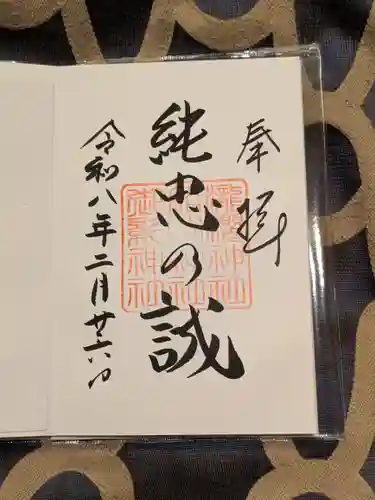 奉拝
純忠の誠
令和八年二月廿六日